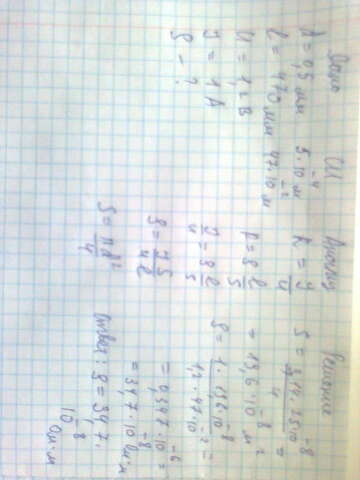 Дано
d = 0,5 мм
l = 470 мм
U = 1,2 В
I = 1 А
ρ - ?
СИ
5·10⁻⁴ м
47·10⁻² м
Анализ
R = U/I
R = ρ l/S
U/I = ρ l/S
ρ = US/Il
S = πd²/4
Решение
S = 3,14·25·10⁻⁸/4 =
= 19,6·10⁻⁸ м²
ρ = 1·19,6·10⁻⁸/1,2·47·10⁻² =
= 0,347·10⁻⁶ =
= 3,47·10⁻⁸ Ом·м
Ответ: ρ = 34,7·
10⁻⁸ Ом·м